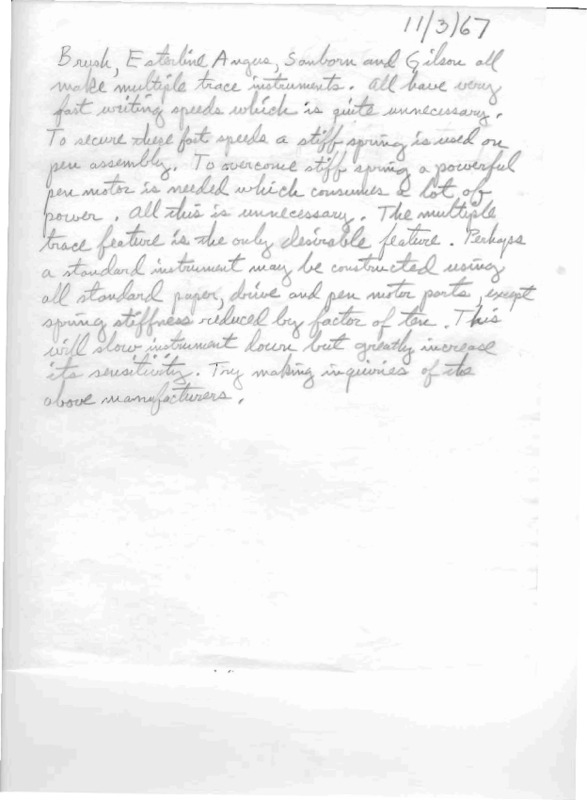 11/3/67
Brush, Esterline Angus, Sanborn and Gilson all
make multiple trace instruments. All have very
fast writing speeds which is quite unnecessary.
To secure these fast speeds a stiff spring is used on
pen assembly. To overcome stiff spring a powerful
pen motor is needed which consumes a lot of
power. All this is unnecessary. The multiple
trace feature is the only desirable feature. Perhaps
a standard instrument may be constructed using
all standard paper, drive and pen motor parts, except
spring stiffness reduced by factor of ten. This
will slow instrument down but greatly increase
its sensitivity. Try making inquiries of the
above manufacturers.